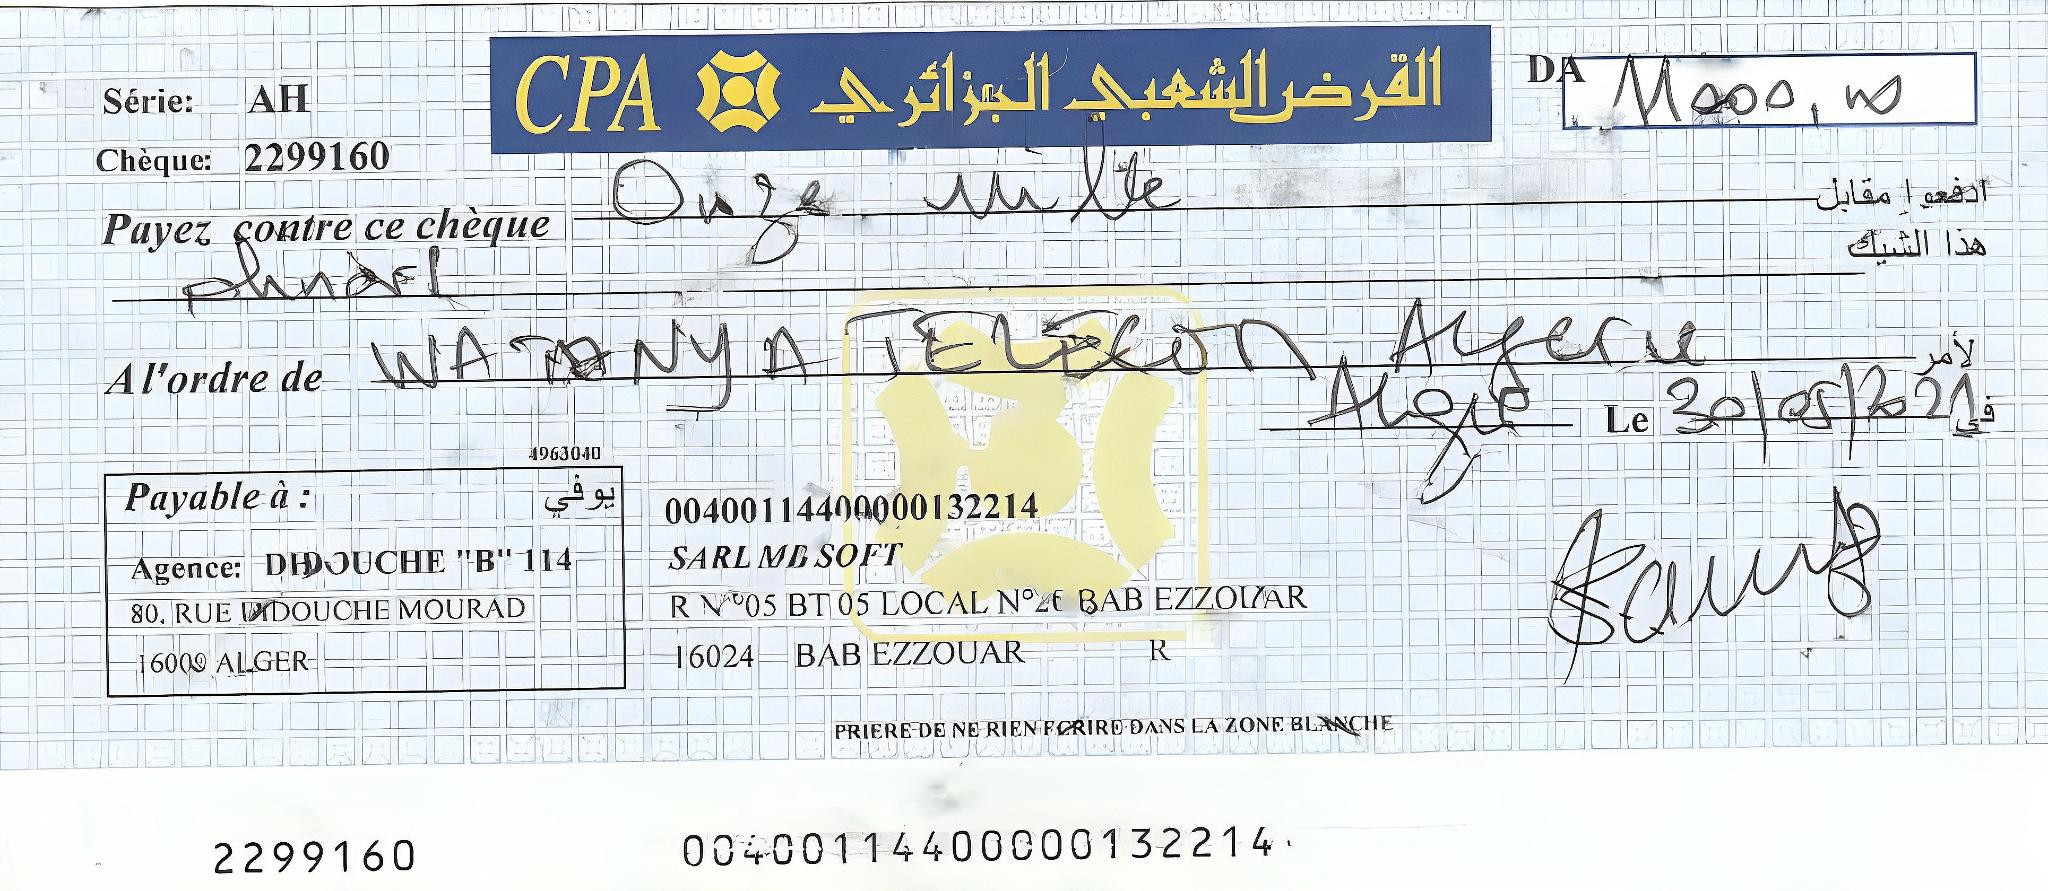 CPA القرض الشعبي الجزائري
Série: AH
DA 11000,00
Chèque: 2299160
Payez contre ce chèque Onze mille ادفعوا مقابل
هذا الشيك
dinars
A l'ordre de WATANYA TELECOM Algerie لأمر
Alger Le 30/05/2021 في
4963040
Payable à : يوفي
Agence: DIDOUCHE "B" 114
80. RUE DIDOUCHE MOURAD
16009 ALGER
00400114400000132214
SARL MB SOFT
R N°05 BT 05 LOCAL N°26 BAB EZZOUAR
16024 BAB EZZOUAR R
PRIERE DE NE RIEN ECRIRE DANS LA ZONE BLANCHE
2299160 00400114400000132214